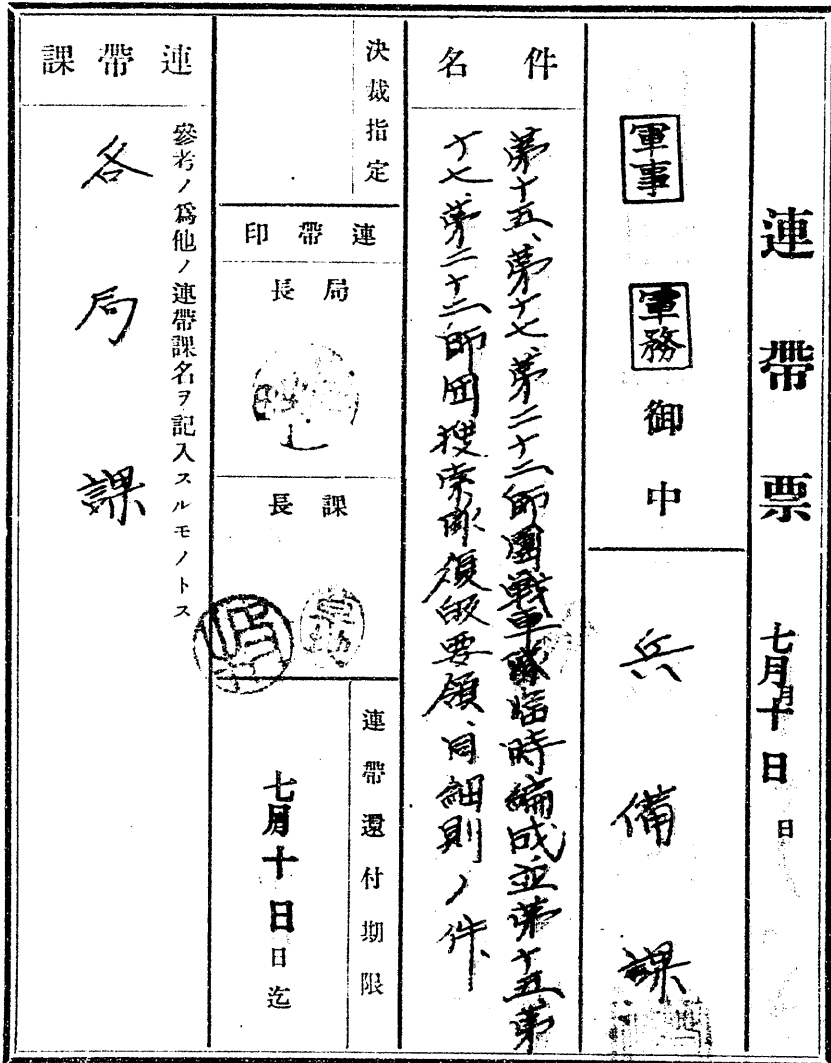 連帶票
七月十日
月
日
軍事
軍務
御中
兵備課
件名
第十五、第十七、第二十二師團戰車隊臨時編成並第十五第
十七、第二十二師団捜索隊復帰要領、同細則ノ件
決裁指定
連帶印
局長
課長
連帶還付期限
七月十日
日迄
連帶課
參考ノ爲他ノ連帶課名ヲ記入スルモノトス
各局課